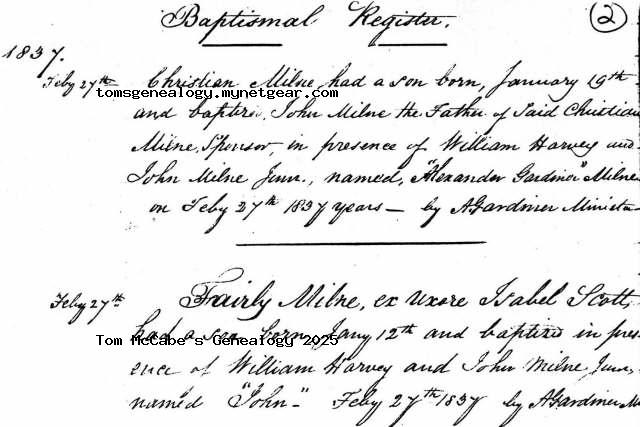 Baptismal Register. (2)
1837.
Feby 27th Christian Milne, had a son born, January 19th
tomsgenealogy.mynetgear.com
and baptizd. John Milne the Father of Said Christian
Milne, Sponsor, in presence of William Harvey and
John Milne Junr., named, "Alexander Gardiner" Milne
on Feby 27th 1837 years — by AGardiner Minister
Feby 27th Fairly Milne, ex Uxore Isabel Scott,
had a son born Jany 12th and baptizd in pres-
Tom McCabe's Genealogy 2025
ence of William Harvey and John Milne Junr,
named "John" - Feby 27th 1837 by AGardiner M